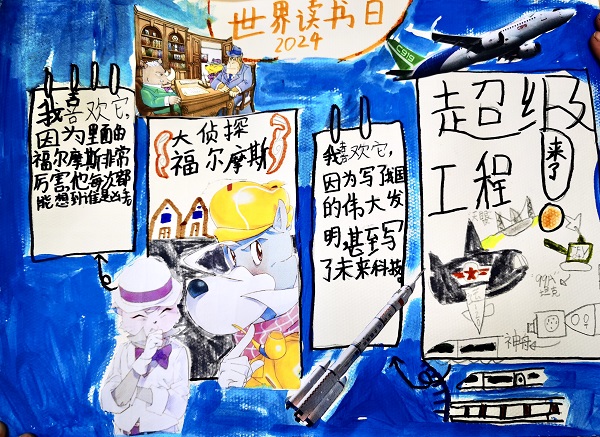 世界读书日
2024
C919
我喜欢它,
因为里面由
福尔摩斯非常
厉害,他每次都
能想到谁是凶手
大侦探
福尔摩斯
我喜欢它,
因为写了我国
的伟大发
明,甚至写
了未来科技
超级
工程
来了
天眼
99A
坦克
神舟